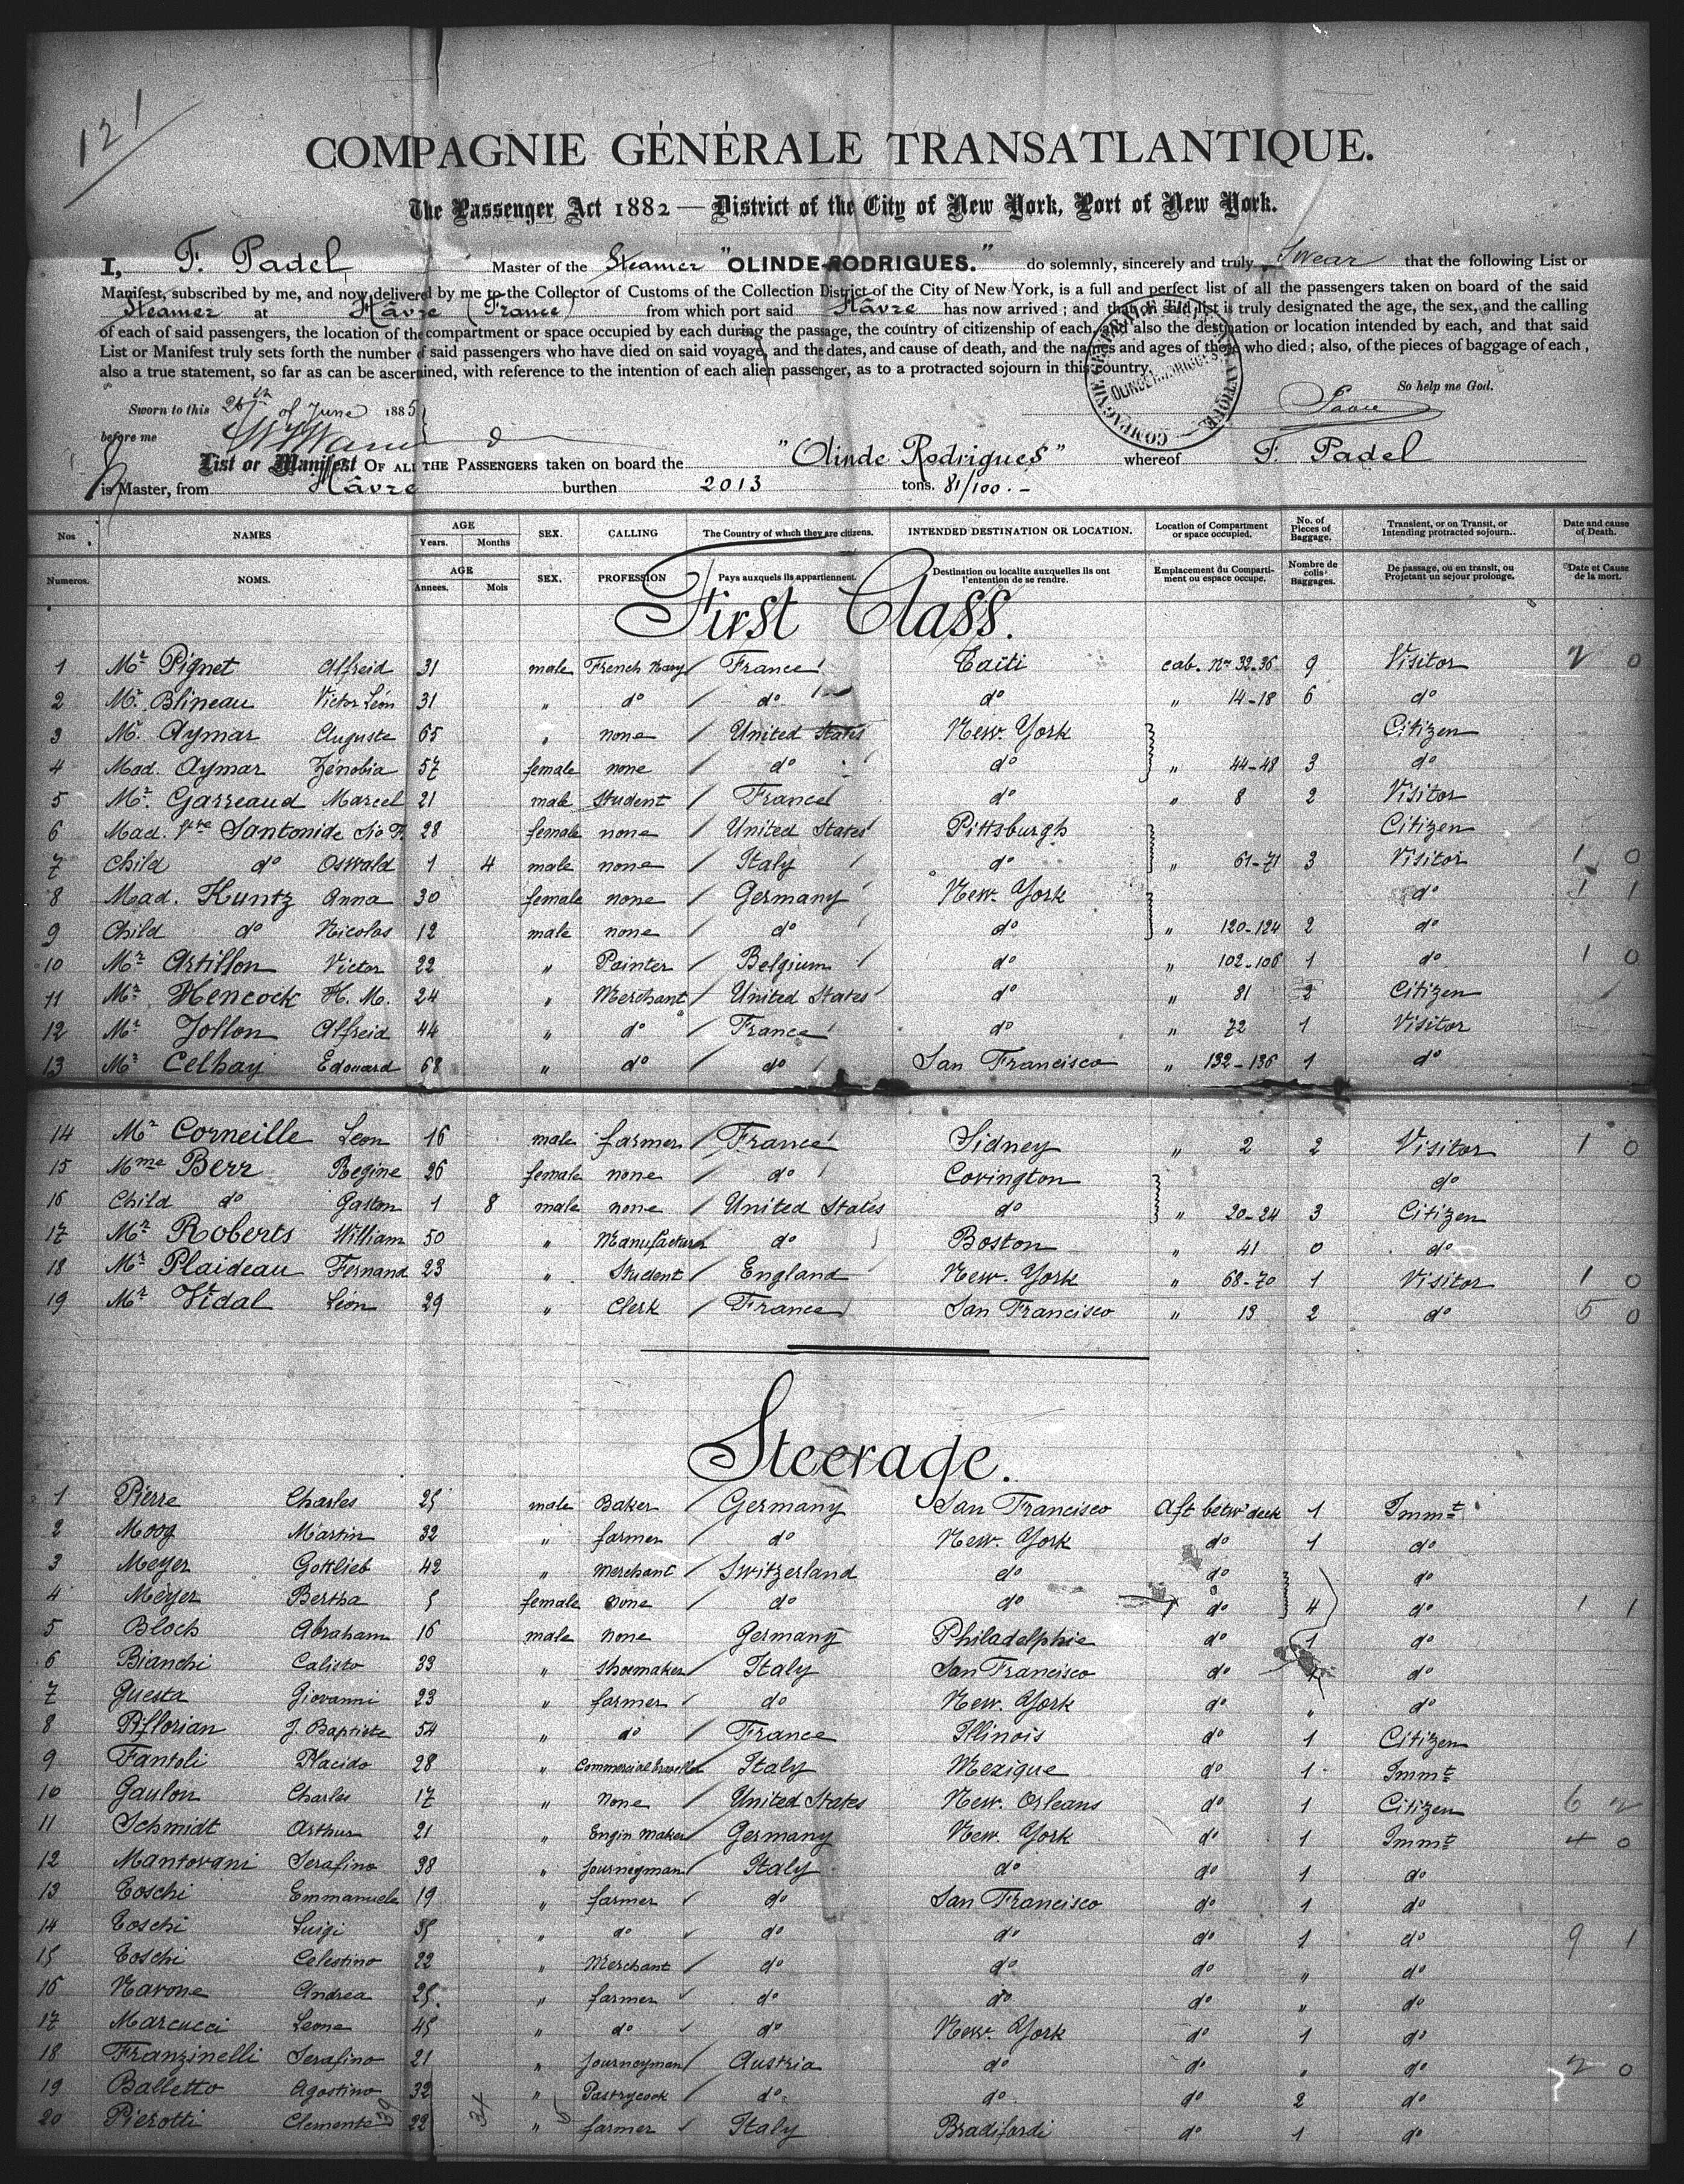 121
COMPAGNIE GÉNÉRALE TRANSATLANTIQUE.
The Passenger Act 1882 — District of the City of New York, Port of New York.
I, F. Padel Master of the Steamer "OLINDE-RODRIGUES." do solemnly, sincerely and truly Swear that the following List or
Manifest, subscribed by me, and now delivered by me to the Collector of Customs of the Collection District of the City of New York, is a full and perfect list of all the passengers taken on board of the said
Steamer at Hâvre (France) from which port said Hâvre has now arrived; and that on said list is truly designated the age, the sex, and the calling
of each of said passengers, the location of the compartment or space occupied by each during the passage, the country of citizenship of each, and also the destination or location intended by each, and that said
List or Manifest truly sets forth the number of said passengers who have died on said voyage, and the dates, and cause of death, and the names and ages of those who died; also, of the pieces of baggage of each,
also a true statement, so far as can be ascertained, with reference to the intention of each alien passenger, as to a protracted sojourn in this country.
So help me God.
Sworn to this 26th of June 1885
before me
List or Manifest OF ALL THE PASSENGERS taken on board the "Olinde Rodrigues" whereof F. Padel
is Master, from Hâvre burthen 2013 tons. 81/100.-
Nos NAMES AGE Years. Months SEX. CALLING The Country of which they are citizens. INTENDED DESTINATION OR LOCATION. Location of Compartment or space occupied. No. of Pieces of Baggage. Transient, or on Transit, or Intending protracted sojourn.. Date and cause of Death.
Numeros. NOMS. AGE Annees. Mois SEX. PROFESSION Pays auxquels ils appartiennent. Destination ou localite auxquelles ils ont l'entention de se rendre. Emplacement du Compartiment ou espace occupe. Nombre de colis Baggages. De passage, ou en transit, ou Projetant un sejour prolonge. Date et Cause de la mort.
First Class.
1 Mr Pignet Alfreid 31 male French Navy France Taïti cab. Nos 32-36 9 Visitor 2 0
2 Mr. Blineau Victor Léon 31 " do do do " 14-18 6 do
3 Mr. Aymar Auguste 65 " none United States New-York Citizen
4 Mad. Aymar Zénobia 57 female none do do " 44-48 3 do
5 Mr. Garreaud Marcel 21 male Student France do " 8 2 Visitor
6 Mad. Vve Santonide 28 female none United States Pittsburgh Citizen
7 Child do Oswald 1 4 male none Italy do " 61-71 3 Visitor 1 0
8 Mad. Kuntz Anna 30 female none Germany New-York do 1 1
9 Child do Nicolas 12 male none do do " 120-124 2 do
10 Mr Artillon Victor 22 " Painter Belgium do " 102-106 1 do 1 0
11 Mr. Hencock H. M. 24 " Merchant United States do " 81 2 Citizen
12 Mr Jollon Alfreid 44 " do France do " 72 1 Visitor
13 Mr Celhay Edouard 68 " do do San Francisco " 132-136 1 do
14 Mr Corneille Leon 16 male farmer France Sidney " 2 2 Visitor 1 0
15 Mme Berr Regine 26 female none do Covington do
16 Child do Gaston 1 8 male none United States do " 20-24 3 Citizen
17 Mr Roberts William 50 " Manufacturer do Boston " 41 0 do
18 Mr Plaideau Fernand 23 " Student England New-York " 68-70 1 Visitor 1 0
19 Mr Vidal Léon 29 " Clerk France San Francisco " 13 2 do 5 0
Steerage.
1 Pierre Charles 25 male Baker Germany San Francisco Aft betw deck 1 Immt
2 Moog Martin 32 " farmer do New-York do 1 do
3 Meyer Gottlieb 42 " Merchant Switzerland do do do
4 Meyer Bertha 5 female none do do do 4 do 1 1
5 Bloch Abraham 16 male none Germany Philadelphie do 1 do
6 Bianchi Calisto 33 " Shoemaker Italy San Francisco do do
7 Questa Giovanni 23 " farmer do New-York do " do
8 Riflorian J. Baptiste 54 " do France Illinois do 1 Citizen
9 Fantoli Placido 28 " Commercial traveller Italy Mexique do 1 Immt
10 Gaulon Charles 17 " None United States New-Orleans do 1 Citizen 6 2
11 Schmidt Arthur 21 " Engin Maker Germany New-York do 1 Immt 4 0
12 Mantovani Serafino 38 " Journeyman Italy do do 1 do
13 Toschi Emmanuele 19 " farmer do San Francisco do 1 do
14 Toschi Luigi 35 " do do do do 1 do 9 1
15 Toschi Celestino 22 " Merchant do do do " do
16 Navone Andrea 25 " farmer do do do " do
17 Marcucci Leone 45 " do do New-York do 1 do
18 Franzinelli Serafino 21 " Journeyman Austria do do " do 2 0
19 Balletto Agostino 32 " Pastrycook do do do 2 do
20 Pierotti Clemente 22 " farmer Italy Bradifordi do 1 do